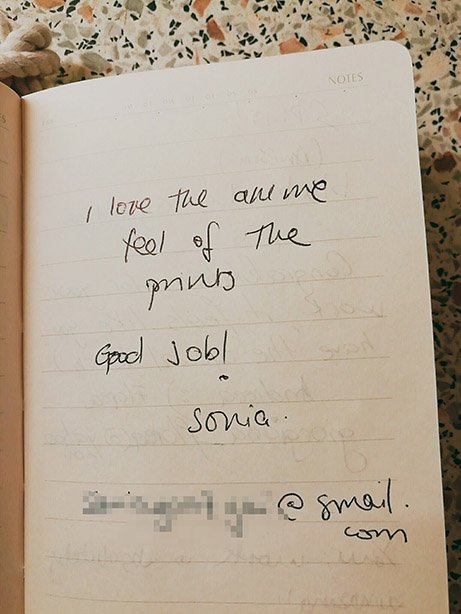 NOTES
I love the anime
feel of the
prints
Good Job!
Sonia.
@gmail.
com